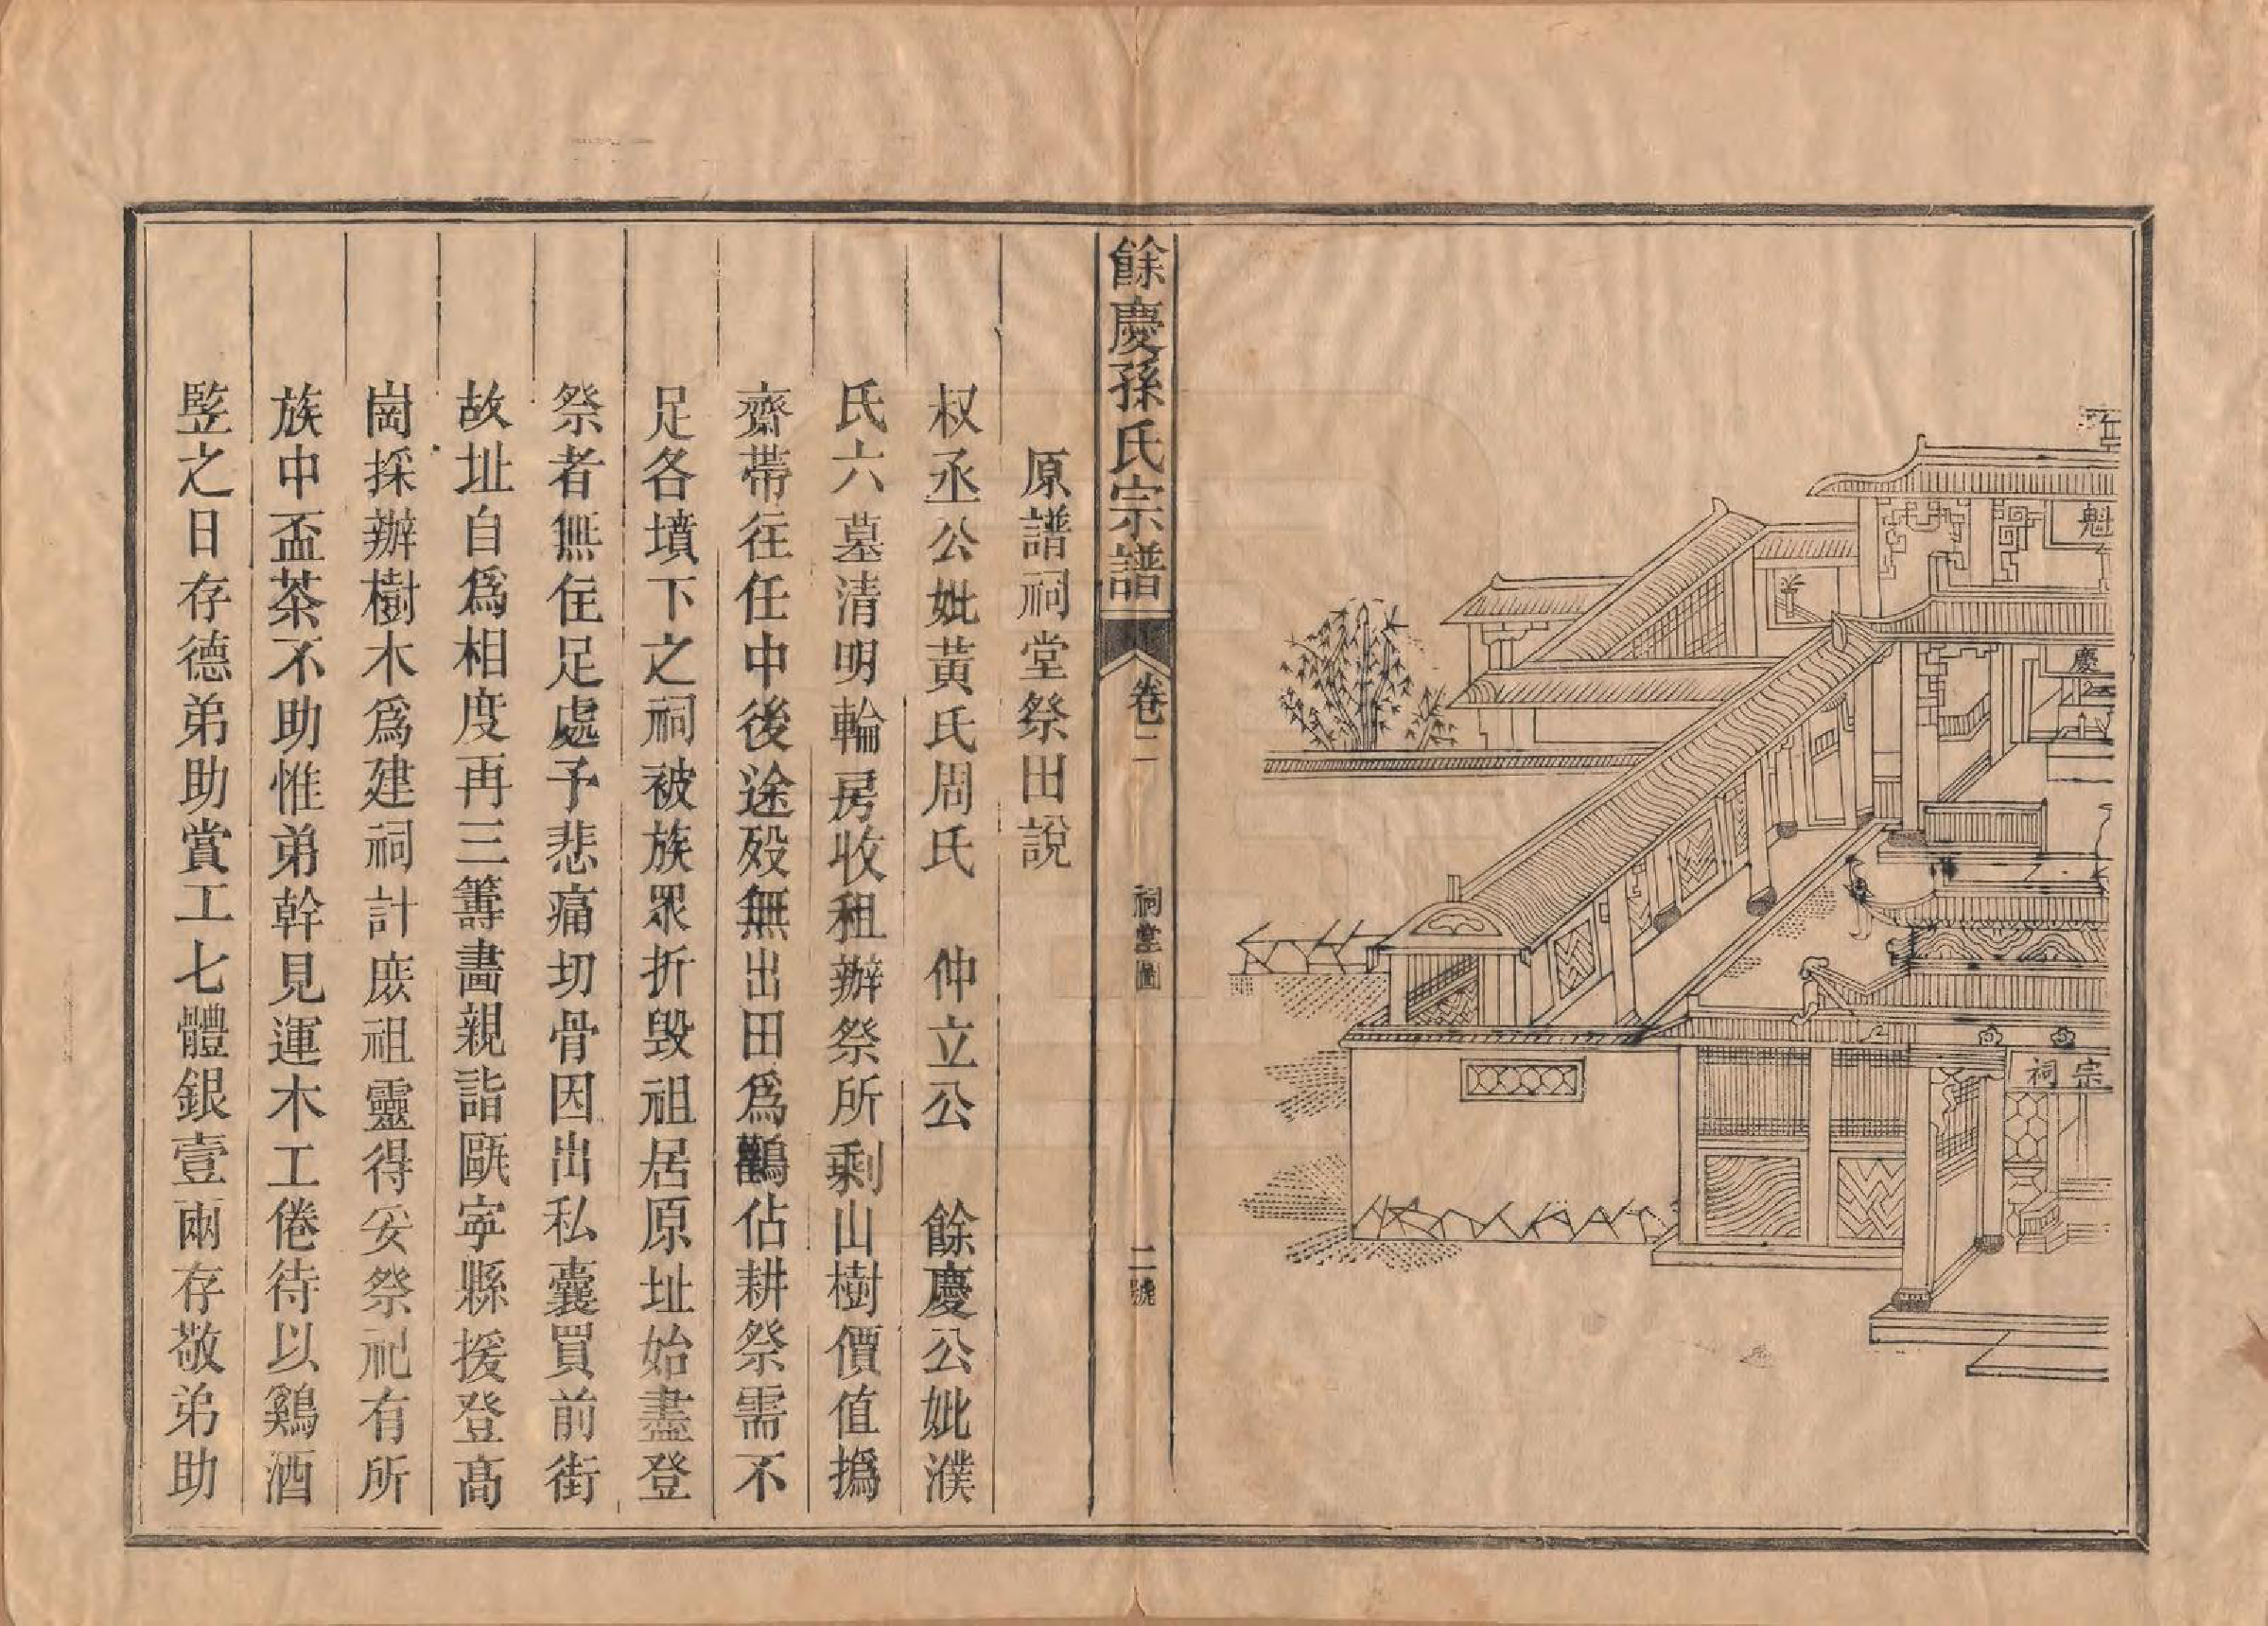 魁
慶
宗祠
餘慶孫氏宗譜
卷二
祠堂圖
二號
原譜祠堂祭田說
叔丞公妣黃氏周氏 仲立公 餘慶公妣濮
氏六墓清明輪房收租辦祭所剩山樹價值撝
齋帶往任中後途歿無出田為鸛佔耕祭需不
足各墳下之祠被族眾折毀祖居原址始盡登
祭者無住足處予悲痛切骨因出私囊買前街
故址自為相度再三籌畫親詣甌寧縣援登高
崗採辦樹木為建祠計庶祖靈得妥祭祀有所
族中盃茶不助惟弟幹見運木工倦待以鷄酒
竪之日存德弟助賞工七體銀壹兩存敬弟助